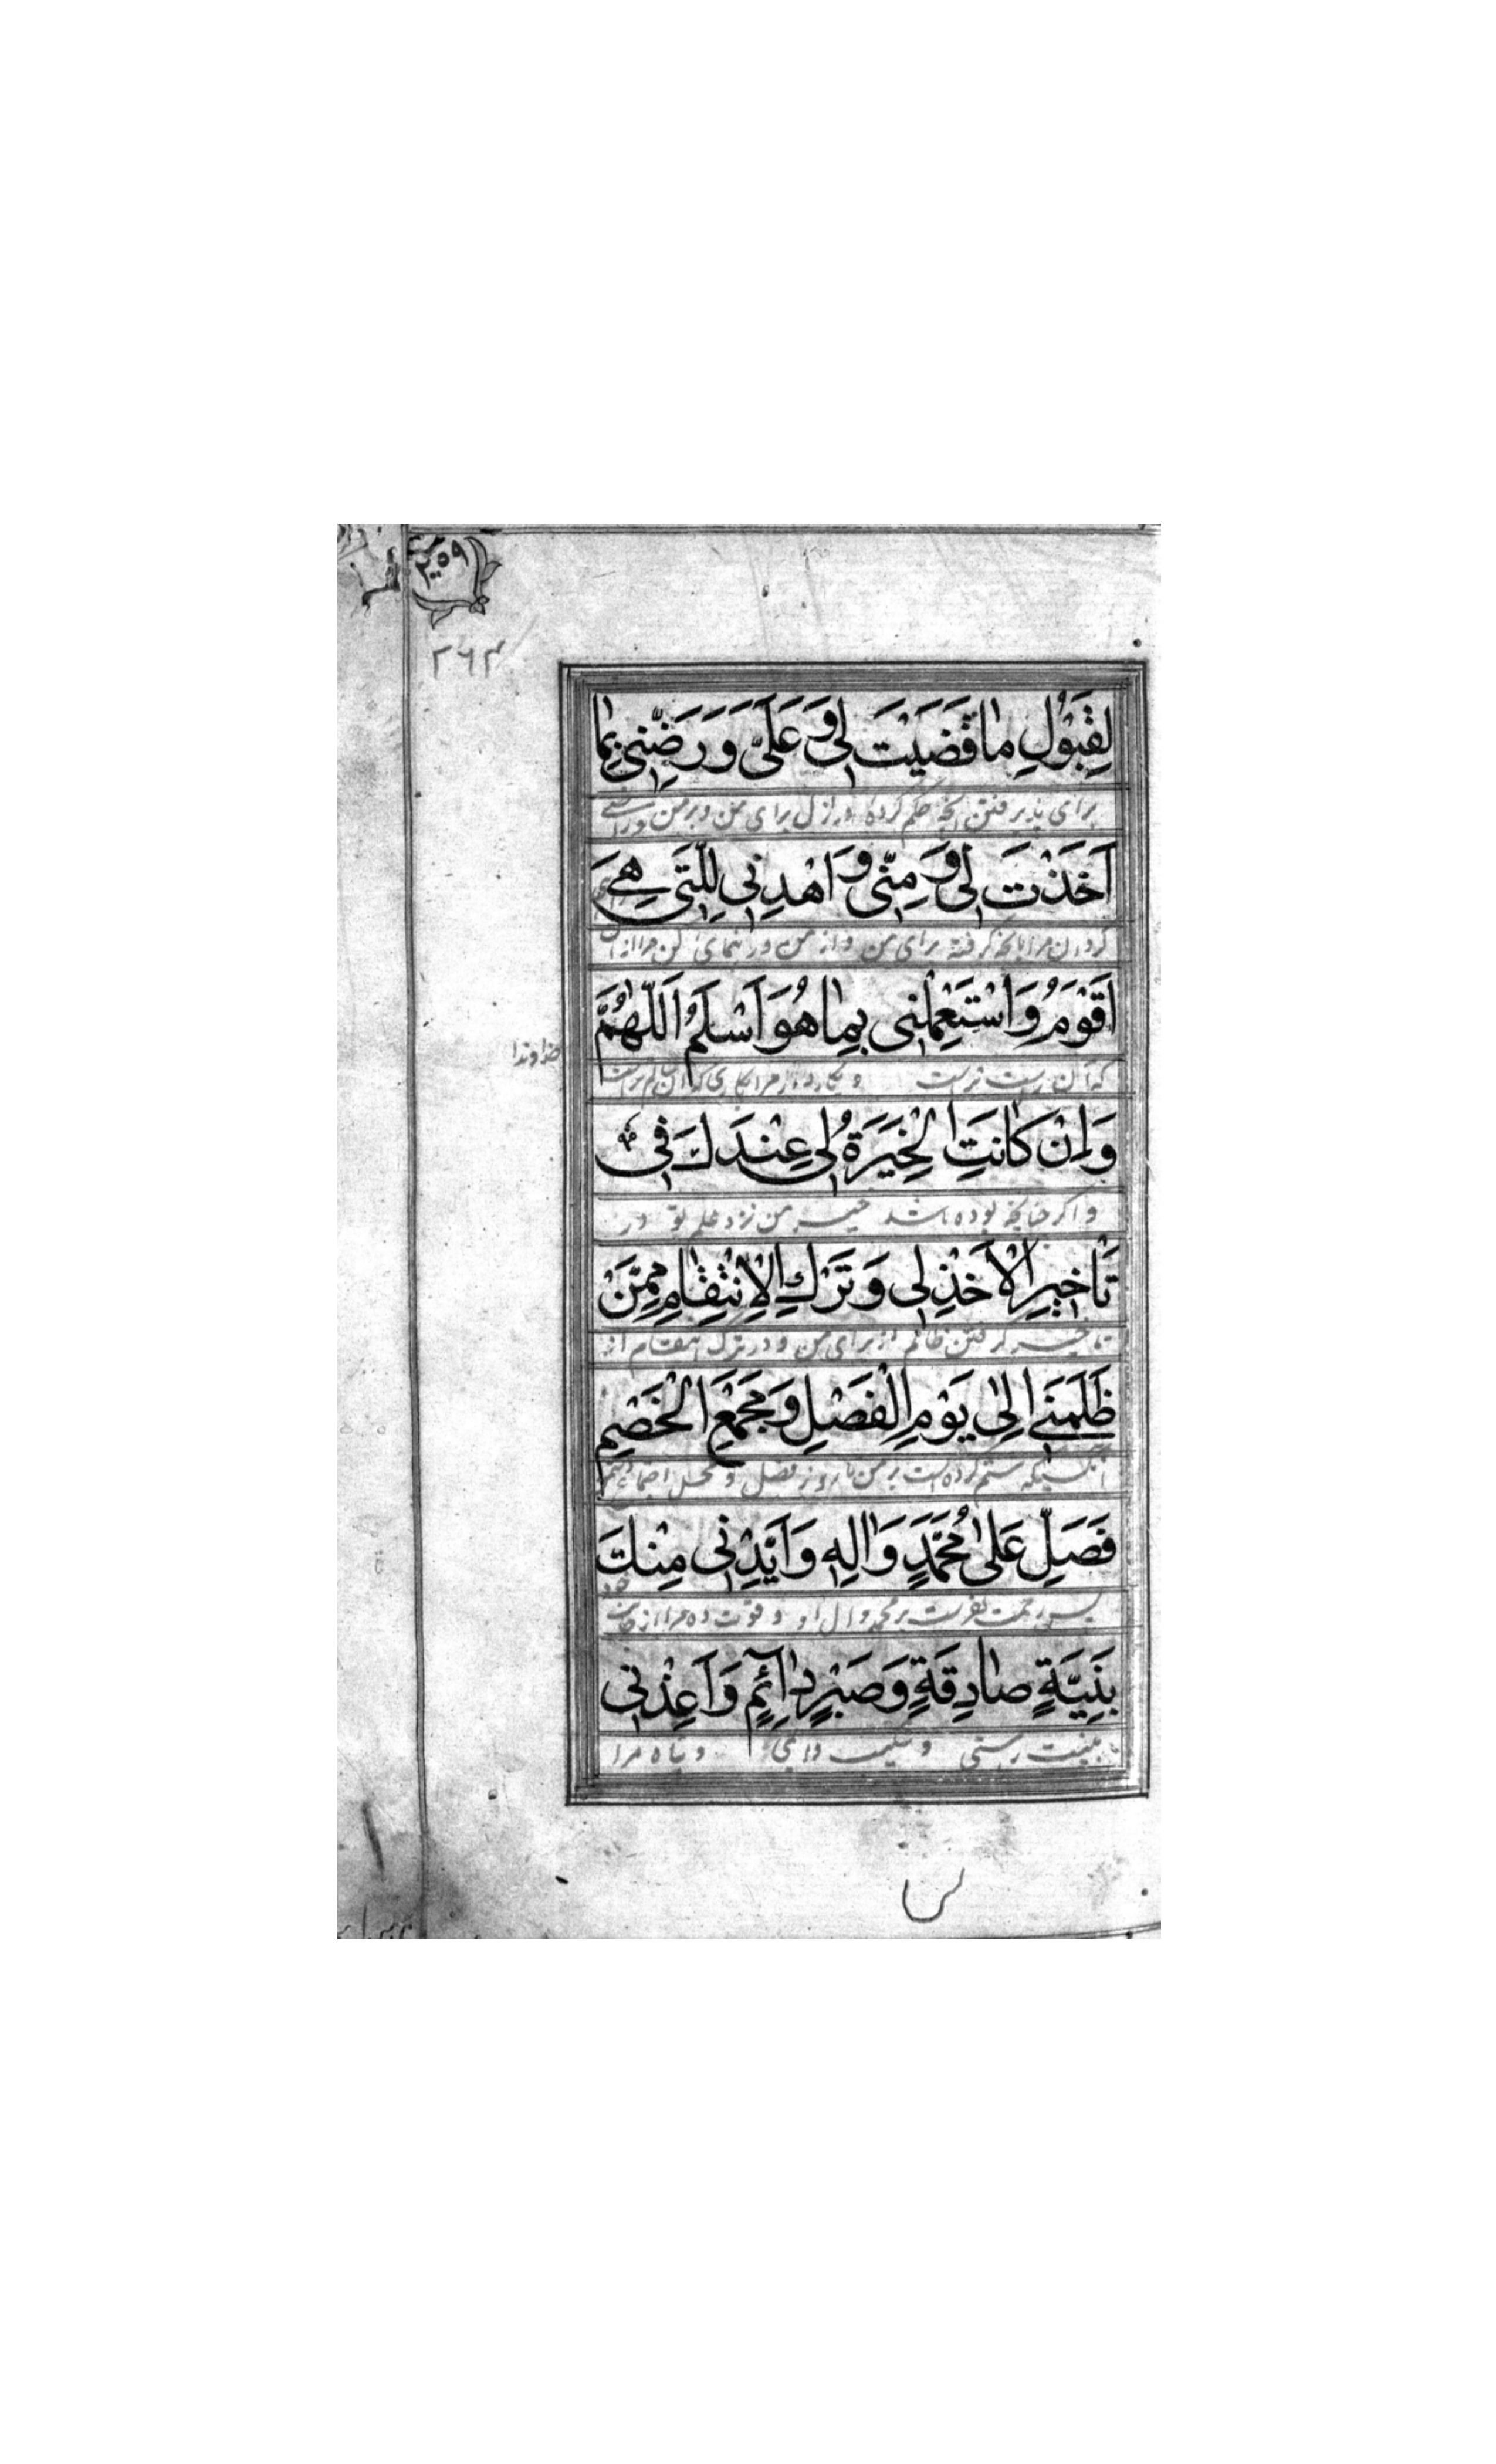 ٢٥٩
٢٦٣
لِقَبُولِ مٰا قَضَيْتَ لِي وَ عَلَيَّ وَ رَضِّنِي بِمٰا
برای پذیرفتن آنچه حکم کرده در ازل برای من و بر من و راضی
اَخَذْتَ لِي وَ مِنّي وَ اهْدِنِي لِلَّتِي هِيَ
گردان مرا بآنچه گرفتهٔ برای من و از من و راهنمائی کن مرا از آن
اَقْوَمُ وَ اسْتَعْمِلْنِي بِمٰا هُوَ اَسْلَمُ اَللّٰهُمَّ
خداوندا
که آن راست تر است و بکار دار مرا بکاری که آن سالم تر است
وَ اِنْ كٰانَتِ الْخِيَرَةُ لِي عِنْدَكَ فِي
و اگر چنانچه بوده باشد خیر من نزد علم تو در
تَاْخيرِ الْاَخْذِ لِي وَ تَرْكِ الْاِنْتِقٰامِ مِمَّنْ
تاخیر گرفتن ظالم از برای من و در ترک انتقام از
ظَلَمَنِي اِلٰى يَوْمِ الْفَصْلِ وَ مَجْمَعِ الْخَصْمِ
آنکسیکه ستم کرده است بر من تا روز فصل و محل اجتماع
فَصَلِّ عَلٰى مُحَمَّدٍ وَ اٰلِهِ وَ اَيِّدْنِي مِنْكَ
پس رحمت بفرست بر محمد و آل او و قوت ده مرا از جانب خود
بِنِيَّةٍ صٰادِقَةٍ وَ صَبْرٍ دٰائِمٍ وَ اَعِذْنِي
به نیت راستی و شکیب دائمی و پناه مرا